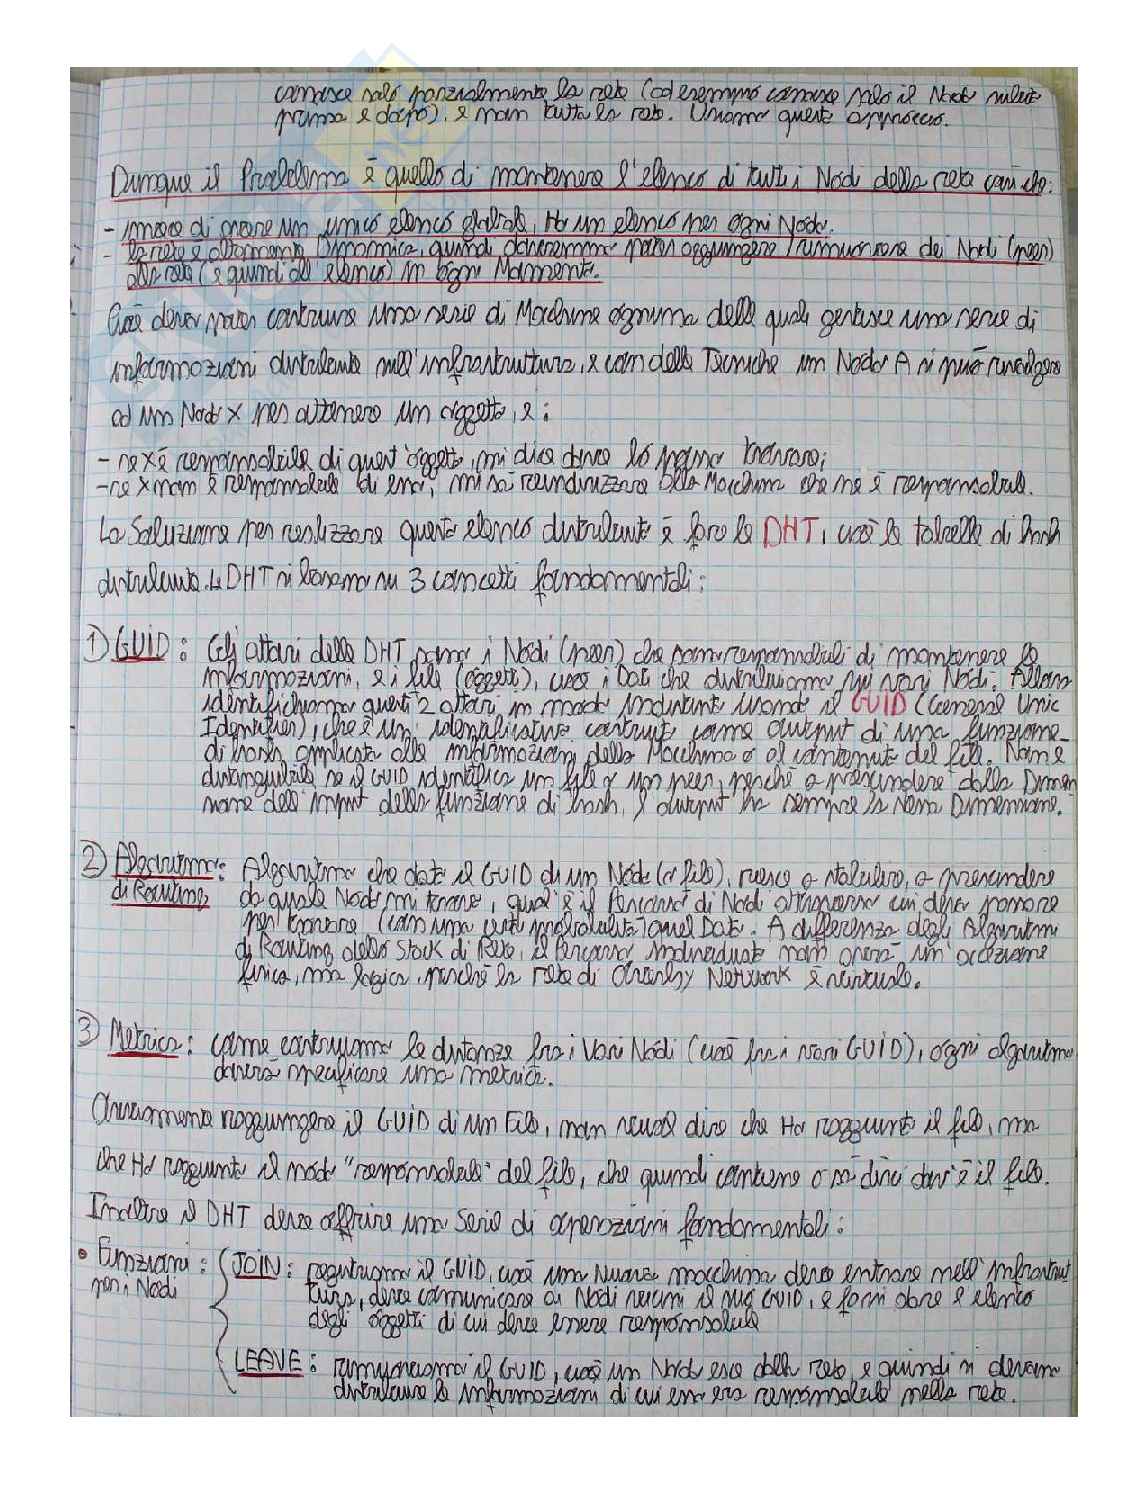 conosce solo parzialmente la rete (ad esempio conosce solo il Nodo subito
prima e dopo), e non tutta la rete. Usiamo questo approccio.
Dunque il Problema è quello di mantenere l'elenco di tutti i Nodi della rete così che:
- invece di avere un unico elenco globale, Ho un elenco per ogni Nodo.
- la rete è altamente Dinamica, quindi dovremmo poter aggiungere / rimuovere dei Nodi (peer)
alla rete (e quindi all' elenco) in ogni Momento.
Cioè devo poter costruire una serie di Macchine ognuna delle quali gestisce una serie di
informazioni distribuite nell'infrastruttura, e con delle Tecniche un Nodo A si può rivolgere
ad un Nodo X per ottenere un oggetto, e:
- se X è responsabile di quest'oggetto, mi dice dove lo posso trovare;
- se X non è responsabile di esso, mi sa reindirizzare alla Macchina che ne è responsabile.
La Soluzione per realizzare questo elenco distribuito è fare la DHT, cioè la tabella di hash
distribuita. Le DHT si basano su 3 concetti fondamentali:
1) GUID: Gli attori della DHT sono i Nodi (peer) che sono responsabili di mantenere le
informazioni, e i file (oggetti), cioè i Dati che distribuiamo sui vari Nodi. Allora
identifichiamo questi 2 attori in modo indistinto usando il GUID (General Unic
Identifier), che è un identificativo costruito come output di una funzione
di hash applicata alle informazioni della Macchina o al contenuto del file. Non è
distinguibile se il GUID identifica un file o un peer, perché a prescindere dalla Dimen
sione dell'input della funzione di hash, l'output ha sempre la stessa Dimensione.
2) Algoritmo: Algoritmo che dato il GUID di un Nodo (o file), riesce a stabilire, a prescindere
di Routing da quale Nodo mi trovo, qual'è il Percorso di Nodi attraverso cui devo passare
per trovare (con una certa probabilità) quel Dato. A differenza degli Algoritmi
di Routing dello Stack di Rete, il Percorso individuato non avrà un'accezione
fisica, ma logica, perché la rete di Overlay Network è virtuale.
3) Metrica: come costruiamo le distanze fra i Vari Nodi (cioè fra i vari GUID), ogni algoritmo
dovrà specificare una metrica.
Ovviamente raggiungere il GUID di un File, non vuol dire che Ho raggiunto il file, ma
che Ho raggiunto il nodo "responsabile" del file, che quindi contiene o sa dirci dov'è il file.
Inoltre il DHT deve offrire una Serie di operazioni fondamentali:
• Funzioni: JOIN: registriamo il GUID, cioè una Nuova macchina deve entrare nell'infrastrut
per i Nodi tura, deve comunicare ai Nodi vicini il suo GUID, e farsi dare l'elenco
degli oggetti di cui deve essere responsabile
LEAVE: rimuoviamo il GUID, cioè un Nodo esce dalla rete, e quindi si devono
distribuire le informazioni di cui esso era responsabile nella rete.